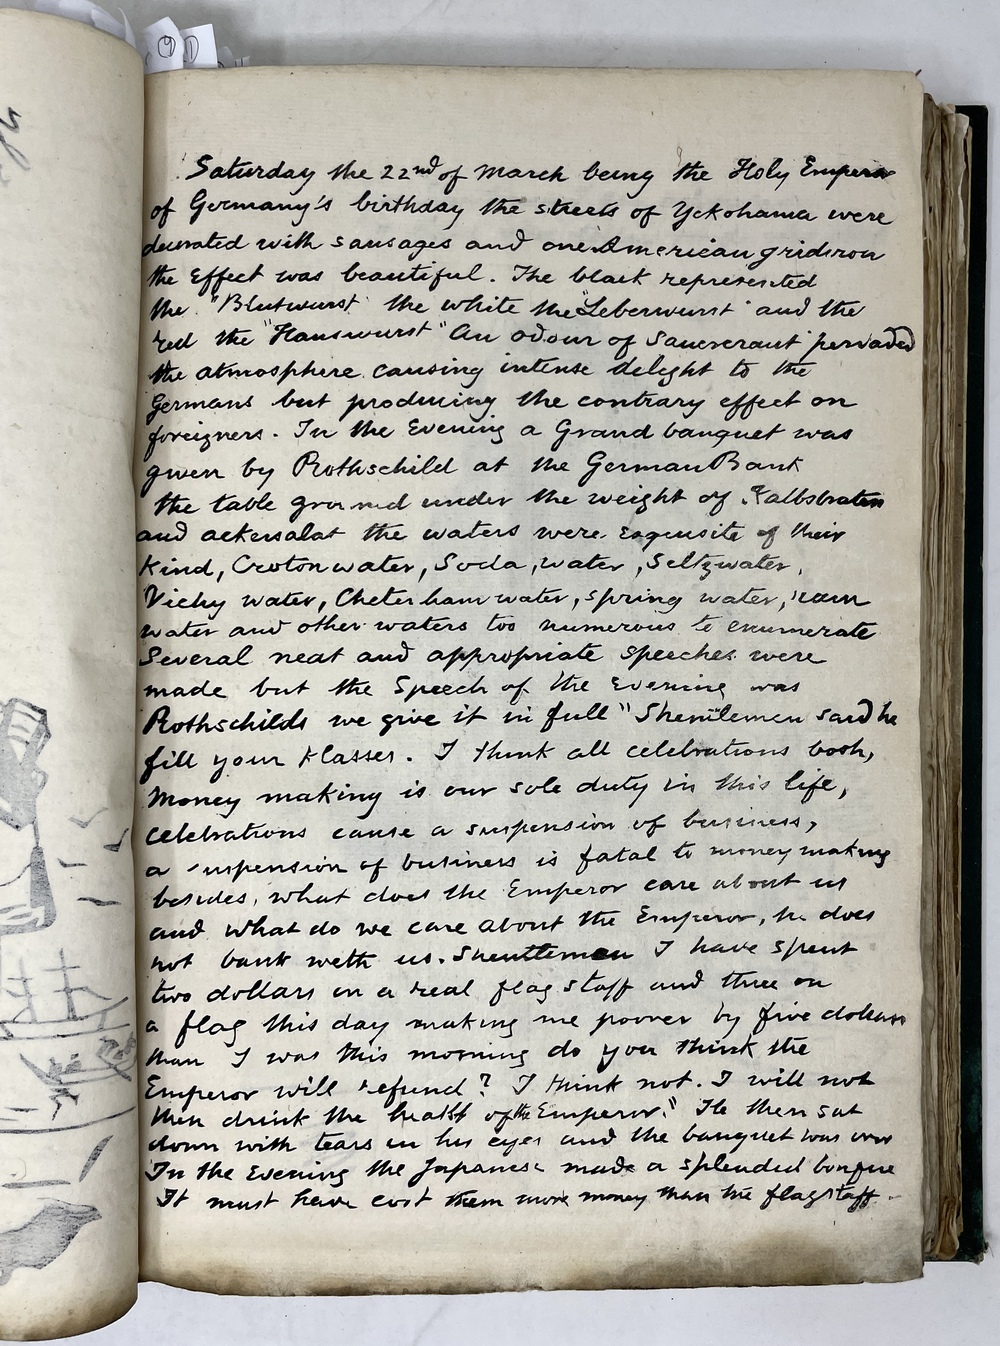 Saturday the 22nd of March being the Holy Emperor
of Germany's birthday the streets of Yokohama were
decorated with sausages and one American gridiron
the Effect was beautiful. The black represented
the "Blutwurst" the white the "Leberwurst" and the
red the "Hanswurst" An odour of Sauercraut pervaded
the atmosphere causing intense delight to the
Germans but producing the contrary effect on
foreigners. In the Evening a Grand banquet was
given by Rothschild at the German Bank
the table groaned under the weight of Kalbsbraten
and ackersalat the waters were Exquisite of their
Kind, Croton water, Soda, water, Seltzwater,
Vichy water, Chetenham water, spring water, rain
water and other waters too numerous to enumerate
Several neat and appropriate speeches were
made but the Speech of the Evening was
Rothschilds we give it in full "Shentlemen said he
fill your Klasses. I think all celebrations bosh,
Money making is our sole duty in this life,
celebrations cause a suspension of business,
a suspension of business is fatal to money making
besides, what does the Emperor care about us
and what do we care about the Emperor, he does
not bank with us. Shentlemen I have spent
two dollars on a real flag staff and three on
a flag this day making me poorer by five dollars
than I was this morning do you think the
Emperor will refund? I think not. I will not
then drink the health of the Emperor." He then sat
down with tears in his eyes and the banquet was over
In the Evening the Japanese made a splendid bonfire
It must have cost them more money than the flagstaff.